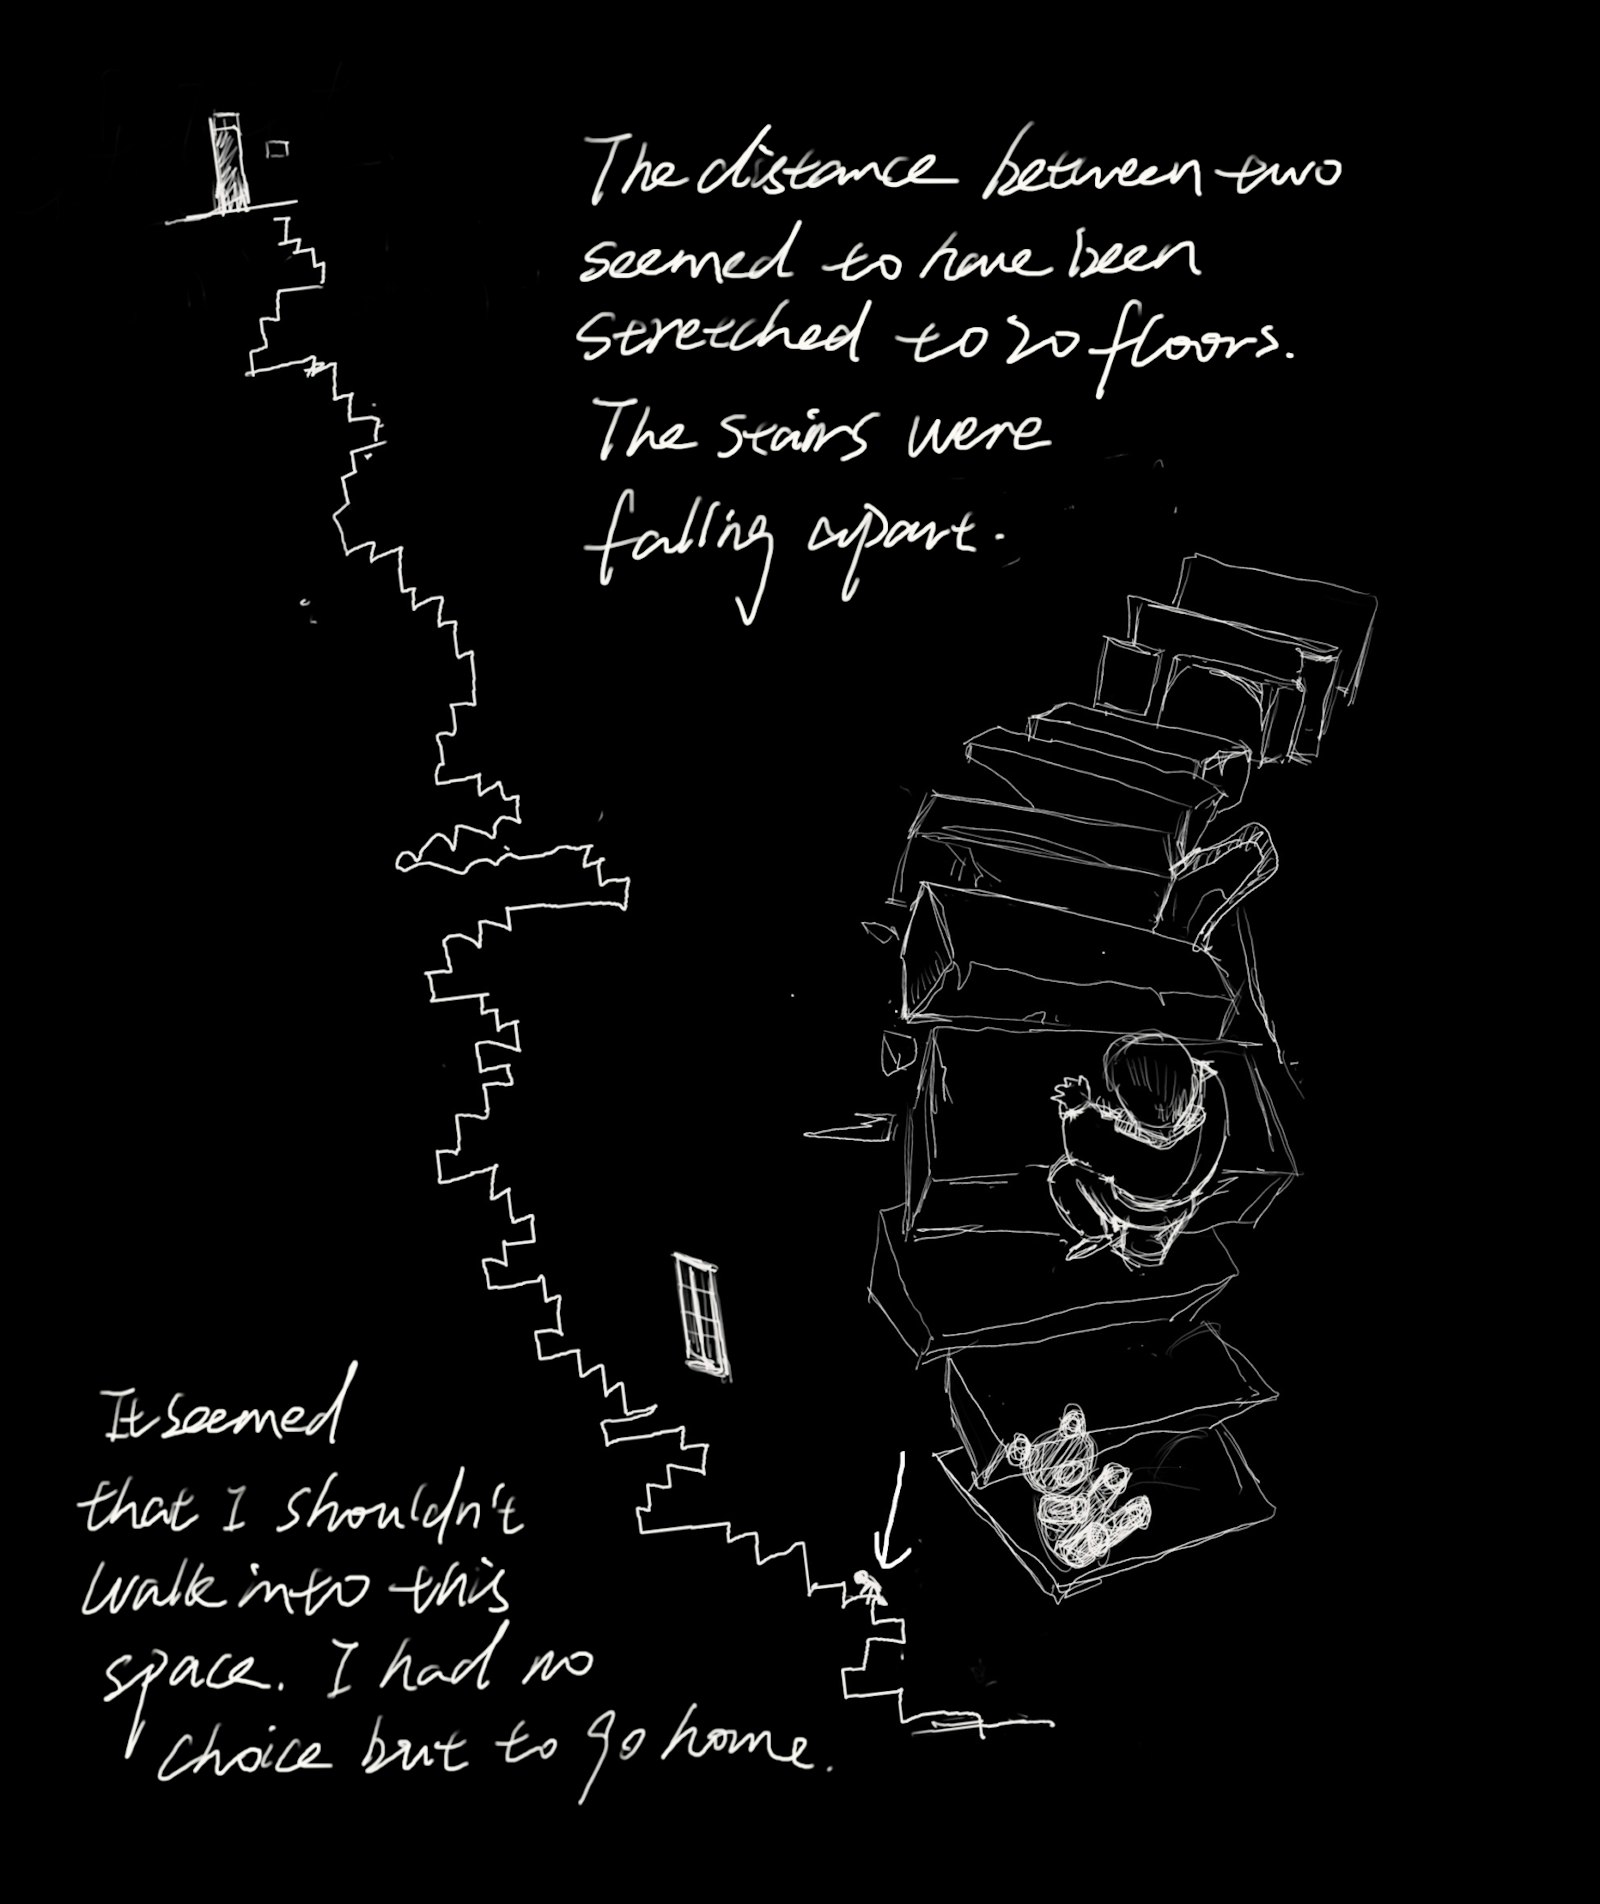 The distance between two
seemed to have been
stretched to 20 floors.
The stairs were
falling apart.
It seemed
that I shouldn't
walk into this
space. I had no
choice but to go home.